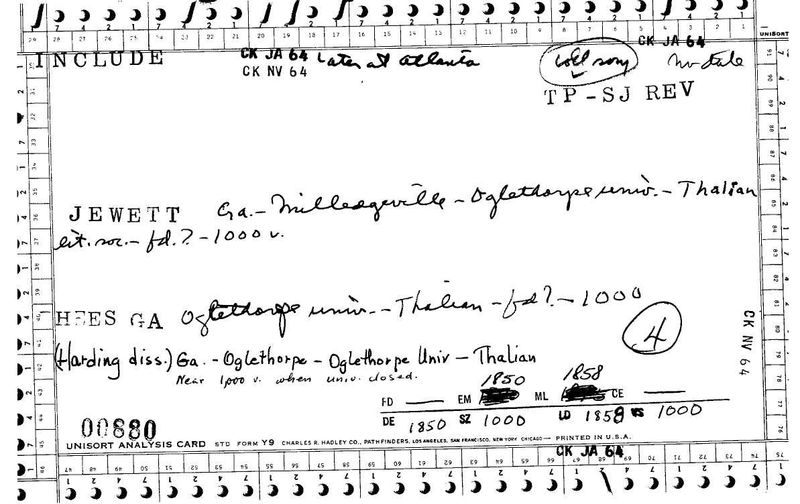 UNISORT
INCLUDE CK JA 64 Later at Atlanta coll soc CK JA 64 no date
CK NV 64
TP-SJ REV
JEWETT Ga. - Milledgeville - Oglethorpe univ. - Thalian
lit. soc. - fd.? - 1000 v.
HEES GA Oglethorpe univ. - Thalian - fd? - 1000
4
CK NV 64
(Harding diss.) Ga. - Oglethorpe - Oglethorpe Univ - Thalian
Near 1,000 v. when univ. closed.
1850 1858
FD EM ML CE
DE 1850 SZ 1000 LD 1858 VS 1000
00880
UNISORT ANALYSIS CARD STD FORM Y9 CHARLES R. HADLEY CO., PATHFINDERS, LOS ANGELES, SAN FRANCISCO, NEW YORK CHICAGO — PRINTED IN U.S.A.
CK JA 64